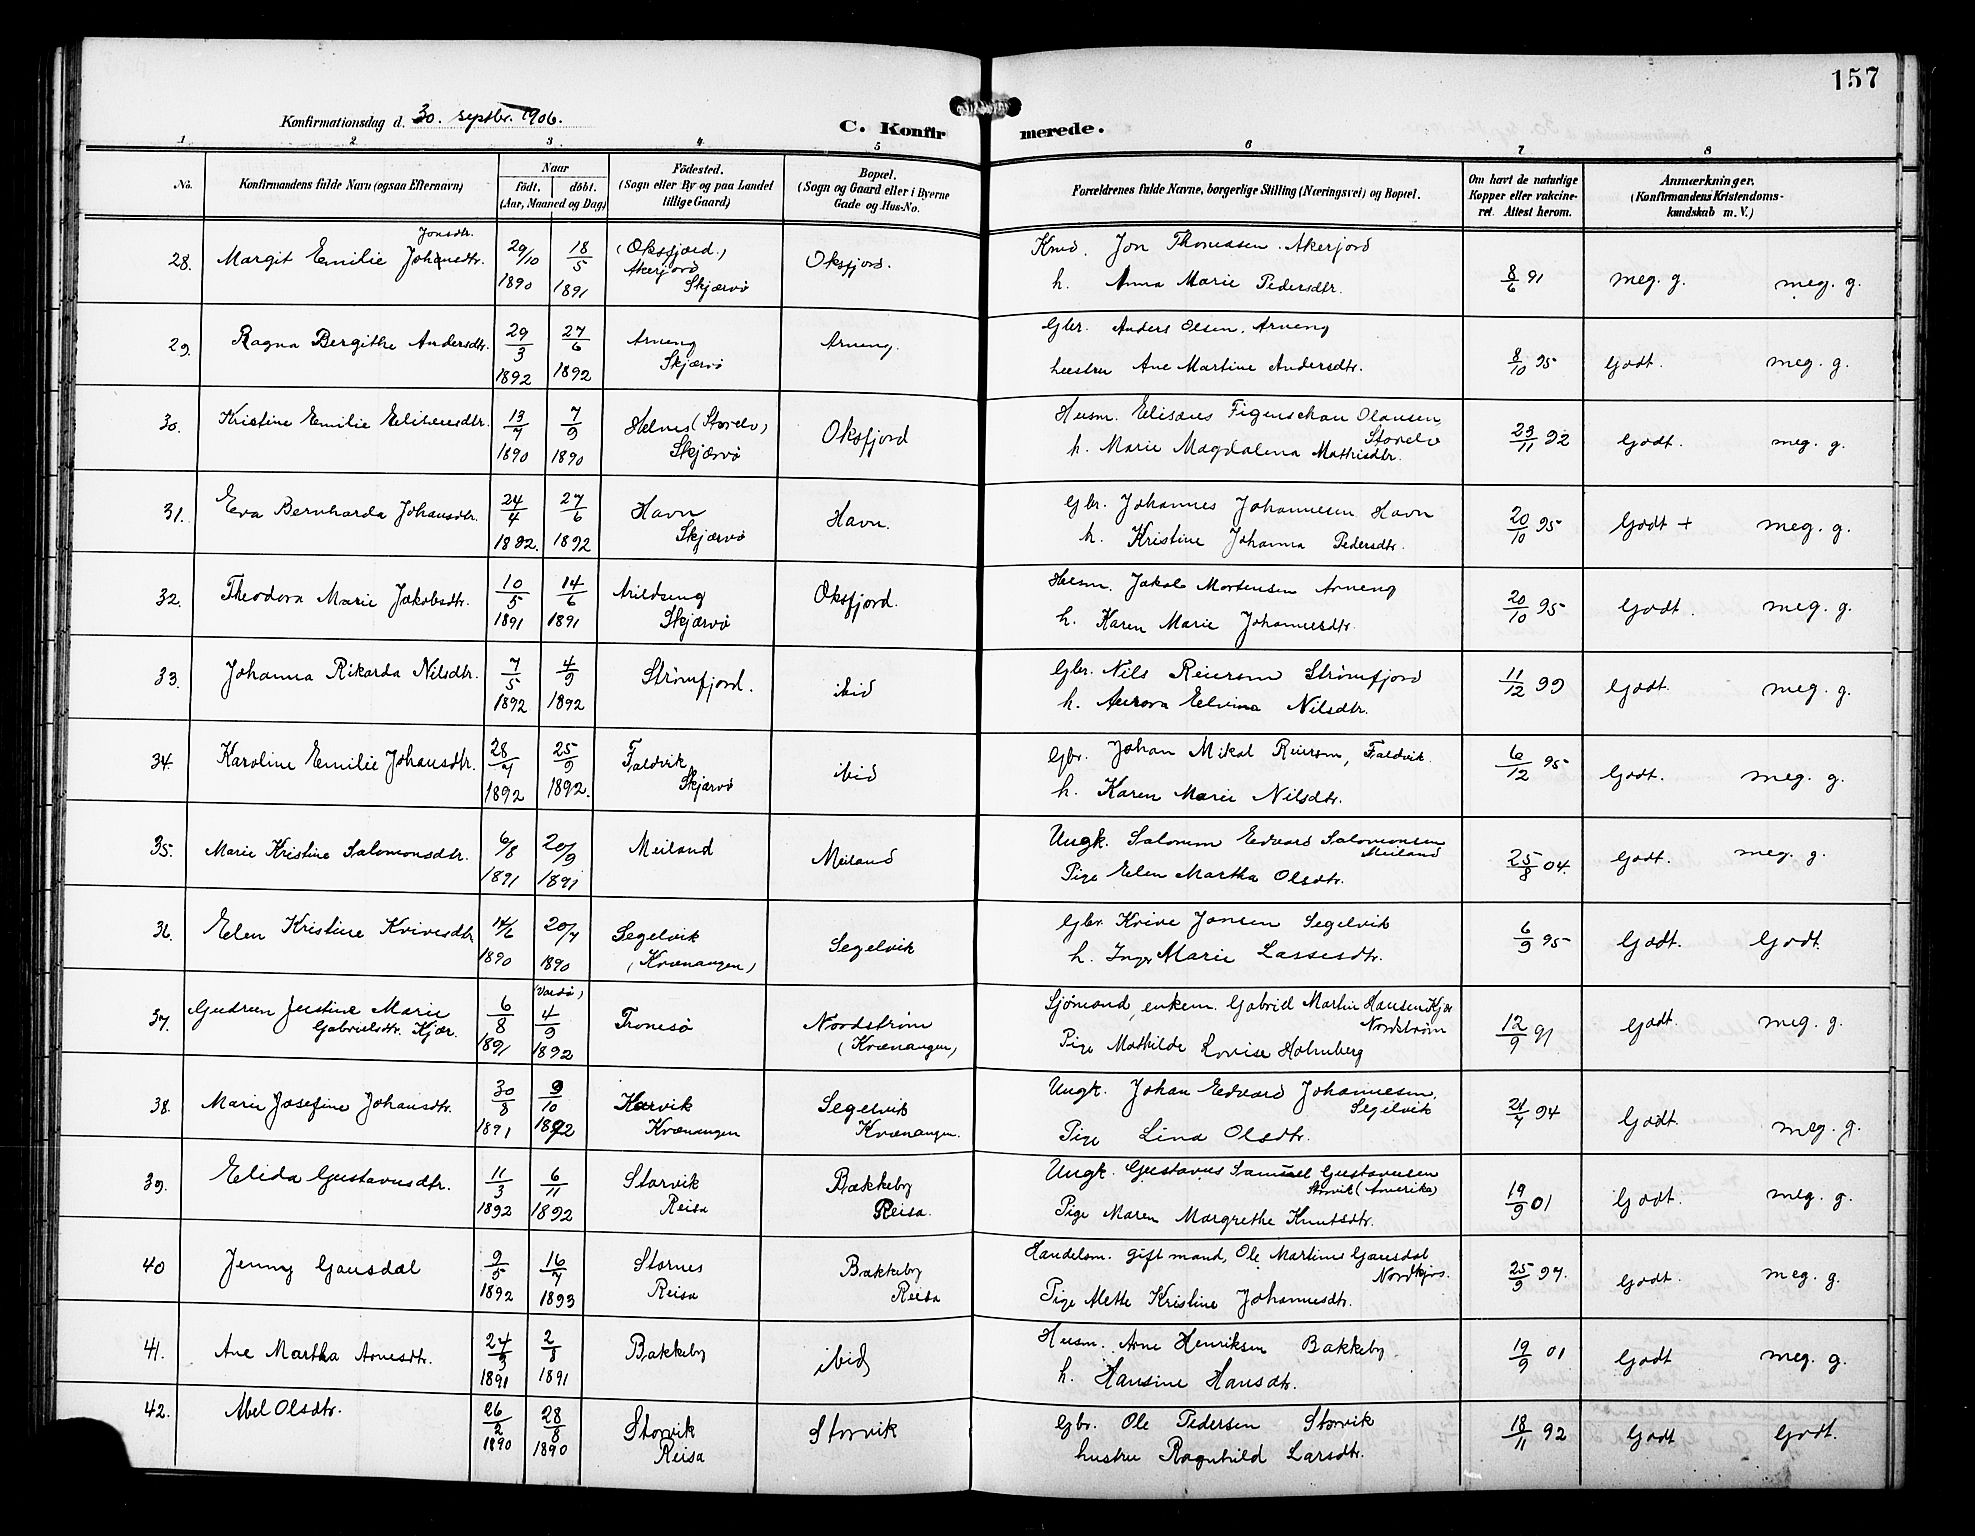 157
Konfirmationsdag d. 30. septbr. 1906.
C. Konfirmerede.
1 2 3. 4. 5 6 7 8
No. Konfirmandens fulde Navn (ogsaa Efternavn) Naar födt. döbt. (Aar, Maaned og Dag) Födested. (Sogn eller By og paa Landet tillige Gaard) Bopæl. (Sogn og Gaard eller i Byerne Gade og Hus-No. Forældrenes fulde Navne, borgerlige Stilling (Næringsvei) og Bopæl. Om havt de naturlige Kopper eller vakcineret. Attest herom. Anmærkninger. (Konfirmandens Kristendomskundskab m. V.)
Jonsdtr.
28. Margit Emilie Johansdtr. 29/10 1890 18/5 1891 (Oksfjord.) Akerjord Skjærvø Oksfjord. Kmd. Jon Thomassen. Akerjord
h. Anna Marie Pedersdtr. 8/6 91 meg. g. meg. g.
29. Ragna Bergithe Andersdtr. 29/3 1892 27/6 1892 Arneng Skjærvø Arneng. Gbr. Anders Olsen, Arneng
hustru Ane Martine Andersdtr. 8/10 95 Godt. meg. g.
30. Kristine Emilie Eliseusdtr. 13/7 1890 7/9 1890 Helnes (Storelv) Skjærvø Oksfjord Husm. Elisæus Figenschau Olausen, Storelv
h. Marie Magdalena Mathisdtr. 23/11 92 Godt. meg. g.
31. Eva Bernharda Johansdtr. 24/4 1892. 27/6 1892 Havn Skjærvø Havn. Gbr. Johannes Johannesen Havn
h. Kristine Johanna Pedersdtr. 20/10 95 Godt + meg. g.
32. Theodora Marie Jakobsdtr. 10/5 1891 14/6 1891 Arildseng Skjærvø Oksfjord. Husm. Jakob Mortensen Arneng
h. Karen Marie Johannesdtr. 20/10 95 Godt. meg. g.
33. Johanna Rikarda Nilsdtr. 7/5 1892 4/9 1892 Strømfjord. ibid Gbr. Nils Reiersen Strømfjord
h. Aurora Elvina Nilsdtr. 11/12 99 Godt. meg. g.
34. Karoline Emilie Johansdtr. 28/7 1892 25/9 1892. Faldvik Skjærvø ibid Gbr. Johan Mikal Reiersen, Faldvik.
h. Karen Marie Nilsdtr. 6/12 95 Godt. meg. g.
35. Marie Kristine Salomonsdtr. 6/8 1891 20/9 1891 Meiland Meiland Ungk. Salomon Edvard Salomonsen Meiland
Pige Elen Martha Olsdtr. 25/8 04. Godt. meg. g.
36. Elen Kristine Kvivesdtr 14/6 1890 20/7 1890 Segelvik (Kvænangen) Segelvik Gbr. Kvive Jonsen Segelvik
h. Inger Marie Lassesdtr. 6/9 95 Godt. Godt.
37. Gudrun Justine Marie Gabrielsdtr. Kjær. 6/8 1891 (Vardø) 4/9 1892 Tromsø Nordstrøm (Kvænangen) Sjømand enkem. Gabriel Martin Hansen Kjær Nordstrøm
Pige Mathilde Lovise Holmberg 12/9 91 Godt. meg. g.
38. Marie Josefine Johansdtr. 30/8 1891 9/10 1892 Karvik Kvænangen Segelvik Kvænangen. Ungk. Johan Edvard Johannesen, Segelvik
Pige Lina Olsdtr. 21/7 94 Godt. meg. g.
39. Elida Gustavusdtr. 11/3 1892 6/11 1892 Storvik Reisa Bakkeby Reisa. Ungk. Gustavus Samuel Gustavusen Storvik (Amerika)
Pige Maren Margrethe Knutsdtr. 19/9 01 Godt. meg. g.
40 Jenny Gausdal 9/5 1892 16/7 1893 Stornes Reisa Bakkeby Reisa Handelsm. gift mand, Ole Martinus Gausdal Nordkjos.
Pige Mette Kristine Johannesdtr. 25/9 97. Godt. meg. g.
41. Ane Martha Arnesdtr. 24/3 1891 2/8 1891 Bakkeby ibid Husm. Arne Henriksen Bakkeby.
h. Hansine Hansdtr. 19/9 01 Godt meg. g.
42. Abel Olsdtr. 26/2 1890 28/8 1890 Storvik Reisa Storvik Gbr. Ole Pedersen Storvik
hustru Ragnhild Larsdtr. 18/11 92 Godt Godt.